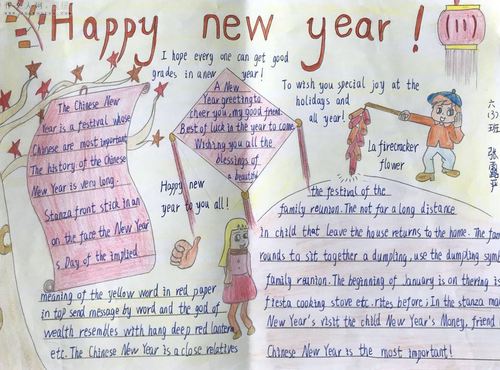 Happy new year!
I hope every one can get good
grades in a new year!
The Chinese New
Year is a festival whose
Chinese are most important
The history of the Chinese
New Year is very long.
Stanza front stick in an
on the face the New Year
s Day of the implied
meaning of the yellow word in red paper
in top send message by word and the god of
wealth resembles with hang deep red lantern
etc. The Chinese New Year is a close relatives
A New
Year greeting to
cheer you, my good friend.
Best of luck in the year to come
Wishing you all the
blessings of
a beauty
Happy new
year to you all!
To wish you special joy at the
holidays and
all year!
La firecracker
flower
六(3)班
the festival of the
family reunion. The not far a long distance
in child that leave the house returns to the home. The fam
rounds to sit together a dumpling, use the dumpling symb
family reunion. The beginning of January is on thering is
fiesta cooking stove etc. rites before; In the stanza ma
New Year's visit the child New Year's Money, friend
Chinese New Year is the most important!